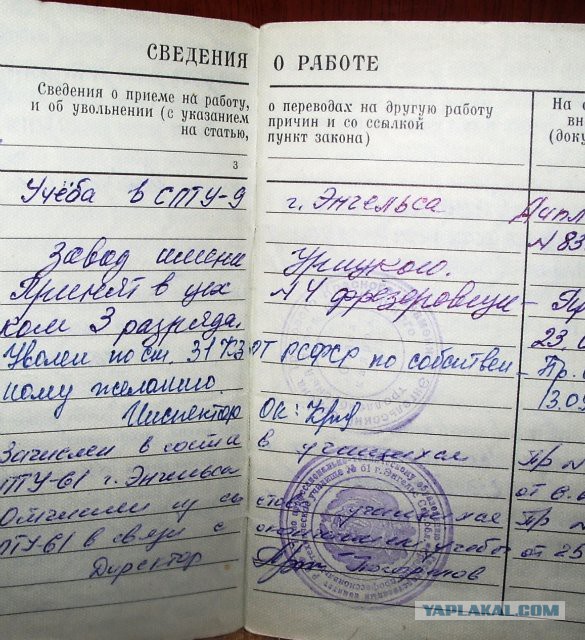 СВЕДЕНИЯ О РАБОТЕ
Сведения о приеме на работу,
и об увольнении (с указанием
на статью,
о переводах на другую работу
причин и со ссылкой
пункт закона)
На о
вн
(доку
3
Учёба в СПТУ-9 г. Энгельса Дипл
N 83
Завод имени Урицкого.
Принят в цех N 4 фрезеровщи-
ком 3 разряда. 23
Уволен по ст. 31 КЗОТ РСФСР по собствен- Пр.
ному желанию. 13.0
Инспектор ОК:
Зачислен в состав учащихся Пр N
ПТУ-61 г. Энгельса от
Отчислен из состава учащихся Пр N
ПТУ-61 в связи с окончанием учебы от 25
Директор
YAPLAKAL.COM